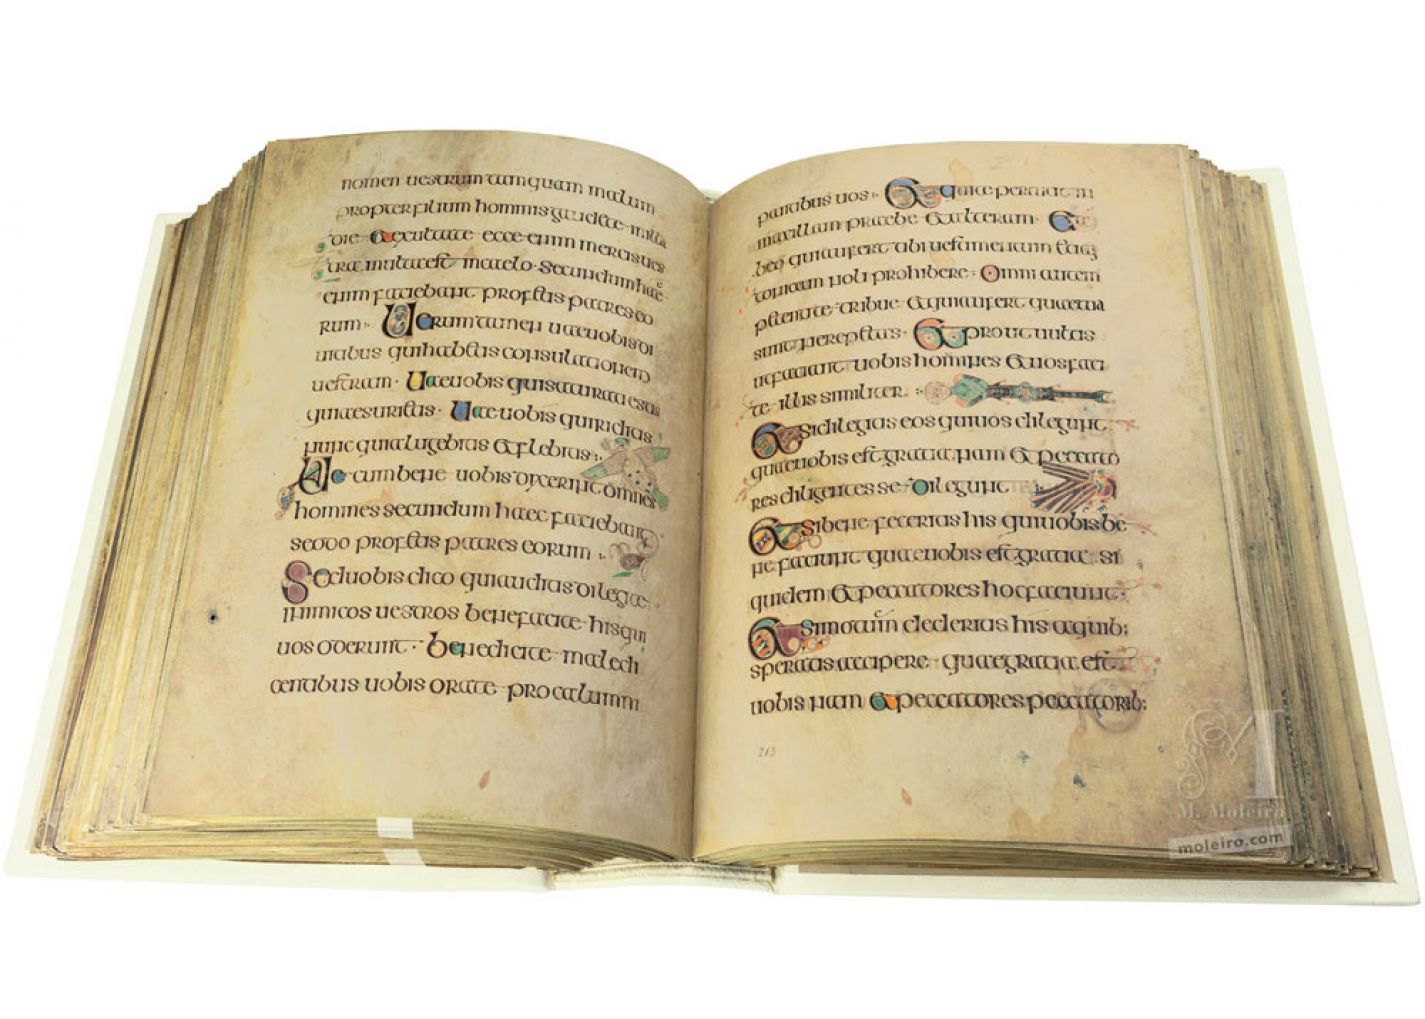 nomen uestrum tamquam malum
propter filium hominis gaudete in illa
die & exultate ecce enim mercis ues
tra multa est in caelo · Secundum haec
enim faciebant profetis patres eo
rum · Uerum tamen uae uobis di
uitibus qui habetis consulationem
uestram · Uae uobis qui saturati estis
qui aesuritis · Uae uobis qui ridetis
nunc quia lugebitis & flebitis ·
Uae cum bene uobis dixerint omnes
homines secundum haec faciebant
seodo profetis patres eorum ·
Sed uobis dico qui auditis dilegite
inimicos uestros benefacite his qui
uos oderunt · benedicite maledi
centibus uobis orate pro calumni
antibus uos · & qui te percutit in
maxillam praebe & alteram · &
ab eo qui aufert tibi uestimentum etiam
tonicam noli prohibere · Omni autem
petenti te tribue & qui aufert quae tua
sunt ne repetas · & prout uultis
ut faciant uobis homines & uos faci
te illis similiter ·
& si dilegitis eos qui uos dilegunt
quae uobis est gratia nam & peccato
res diligentes se dilegunt
& si bene feceritis his qui uobis be
ne faciunt quae uobis est gratia · si
quidem & peccatores hoc faciunt ·
& si motuum dederitis his a quib;
speratis accipere · quae gratia est
uobis nam & peccatores peccatorib;
213
M. Moleiro
moleiro.com